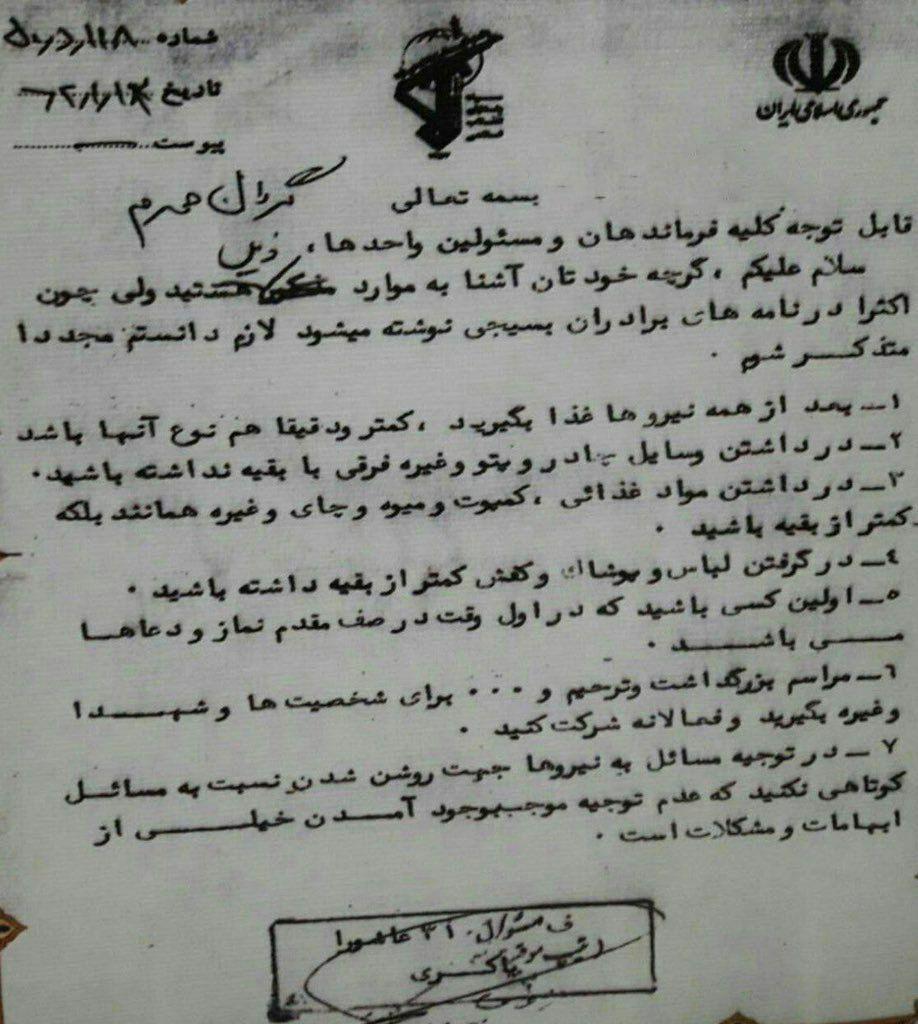 شماره
تاریخ
پیوست
جمهوری اسلامی ایران
بسمه تعالی
قابل توجه کلیه فرماندهان و مسئولین واحدها،
ذیل
سلام علیکم ، گرچه خودتان آشنا به موارد هستید ولی چون
اکثرا درنامه های برادران بسیجی نوشته میشود لازم دانستم مجددا
متذکر شوم .
۱ــ بعد از همه نیروها غذا بگیرید ، کمتر ودقیقا هم نوع آنها باشد
۲ــ درداشتن وسایل چادر و پتو وغیره فرقی با بقیه نداشته باشید .
۳ــ درداشتن مواد غذائی ، کمپوت ومیوه وچای وغیره همانند بلکه
کمتر از بقیه باشید .
٤ــ در گرفتن لباس و پوشاک وکفش کمتر از بقیه داشته باشید .
٥ــ اولین کسی باشید که در اول وقت در صف مقدم نماز و دعاها
می باشد .
٦ــ مراسم بزرگداشت وترحیم و ... برای شخصیت ها و شهدا
وغیره بگیرید و فعالانه شرکت کنید .
۷ــ در توجیه مسائل به نیروها جهت روشن شدن نسبت به مسائل
کوتاهی نکنید که عدم توجیه موجب بوجود آمدن خیلی از
ابهامات و مشکلات است .
ف مسئول ۳۱ عاشورا
باکری